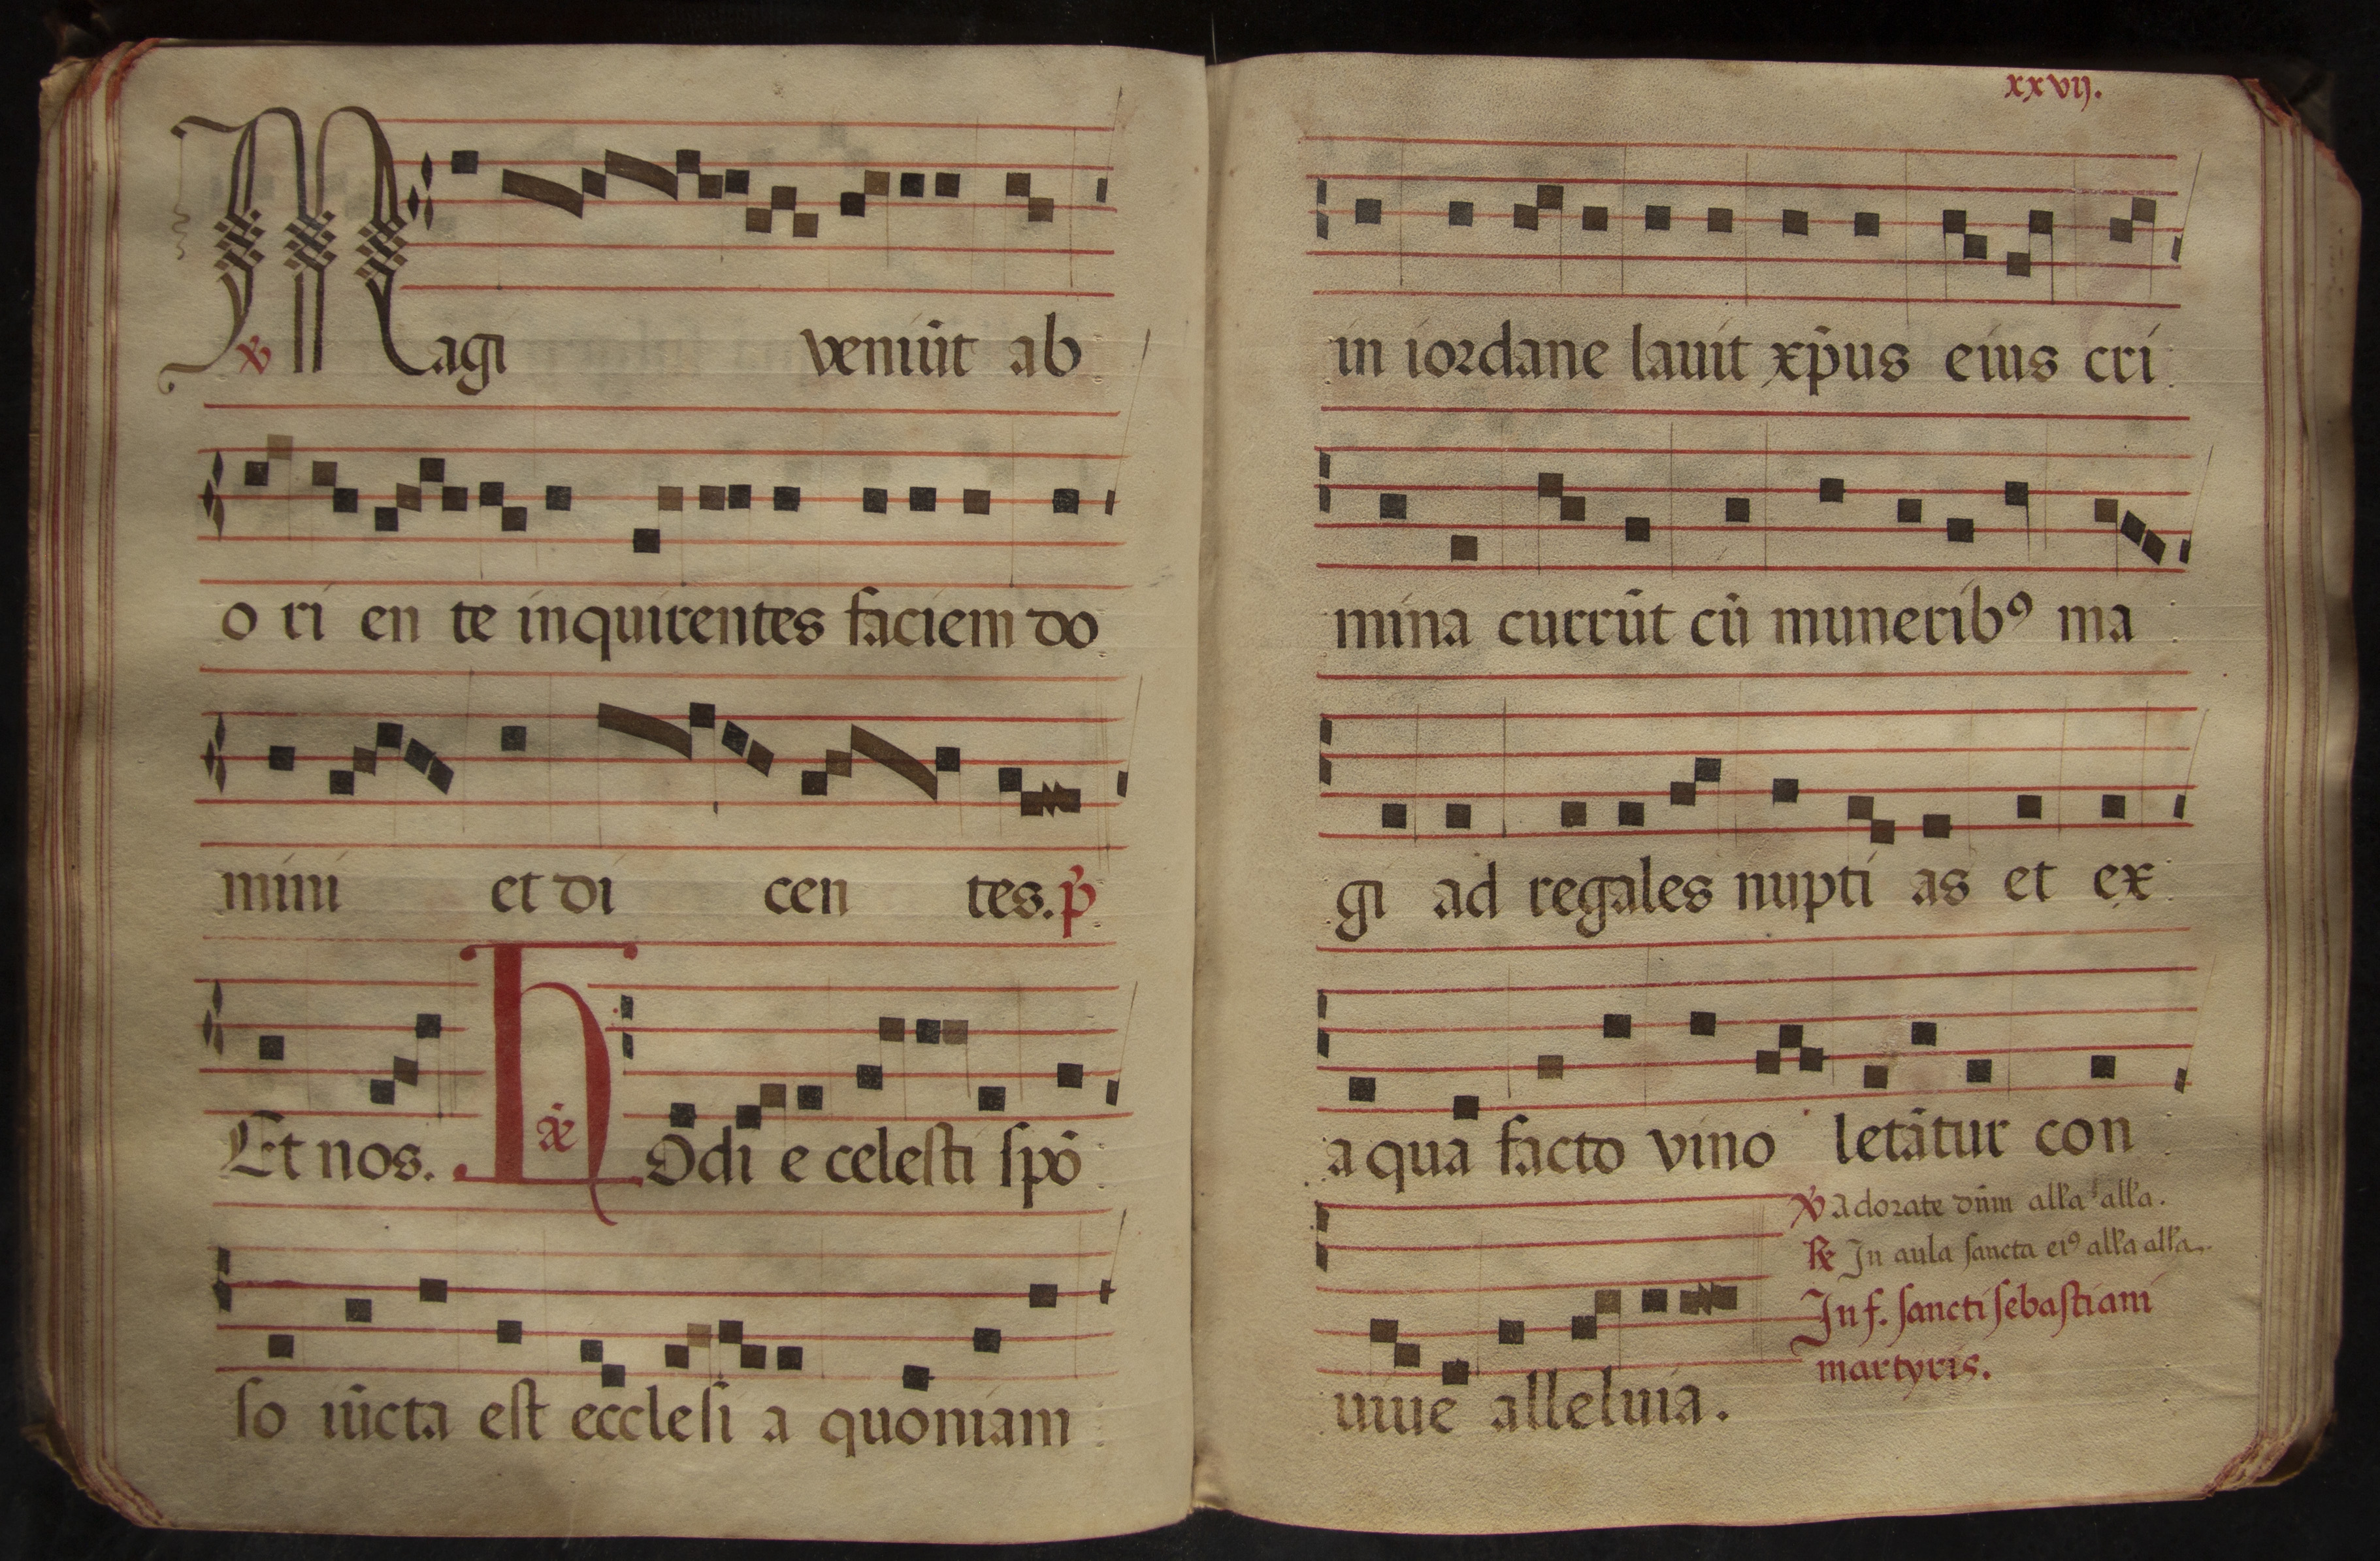 ℣ Magi veniūt ab
o ri en te inquirentes faciem do
mini et di cen tes. p̄
Et nos. H ã Odi e celesti spō
so iūcta est ecclesi a quoniam
xxvij.
in iordane lauit xp̄us eius cri
mina currūt cū muneribꝰ ma
gi ad regales nupti as et ex
aqua facto vino letātur con
℣ adorate dn̄m all'a all'a.
℟ In aula sancta eiꝰ all'a all'a.
In f. sancti sebastiani
martyris.
uiue alleluia.